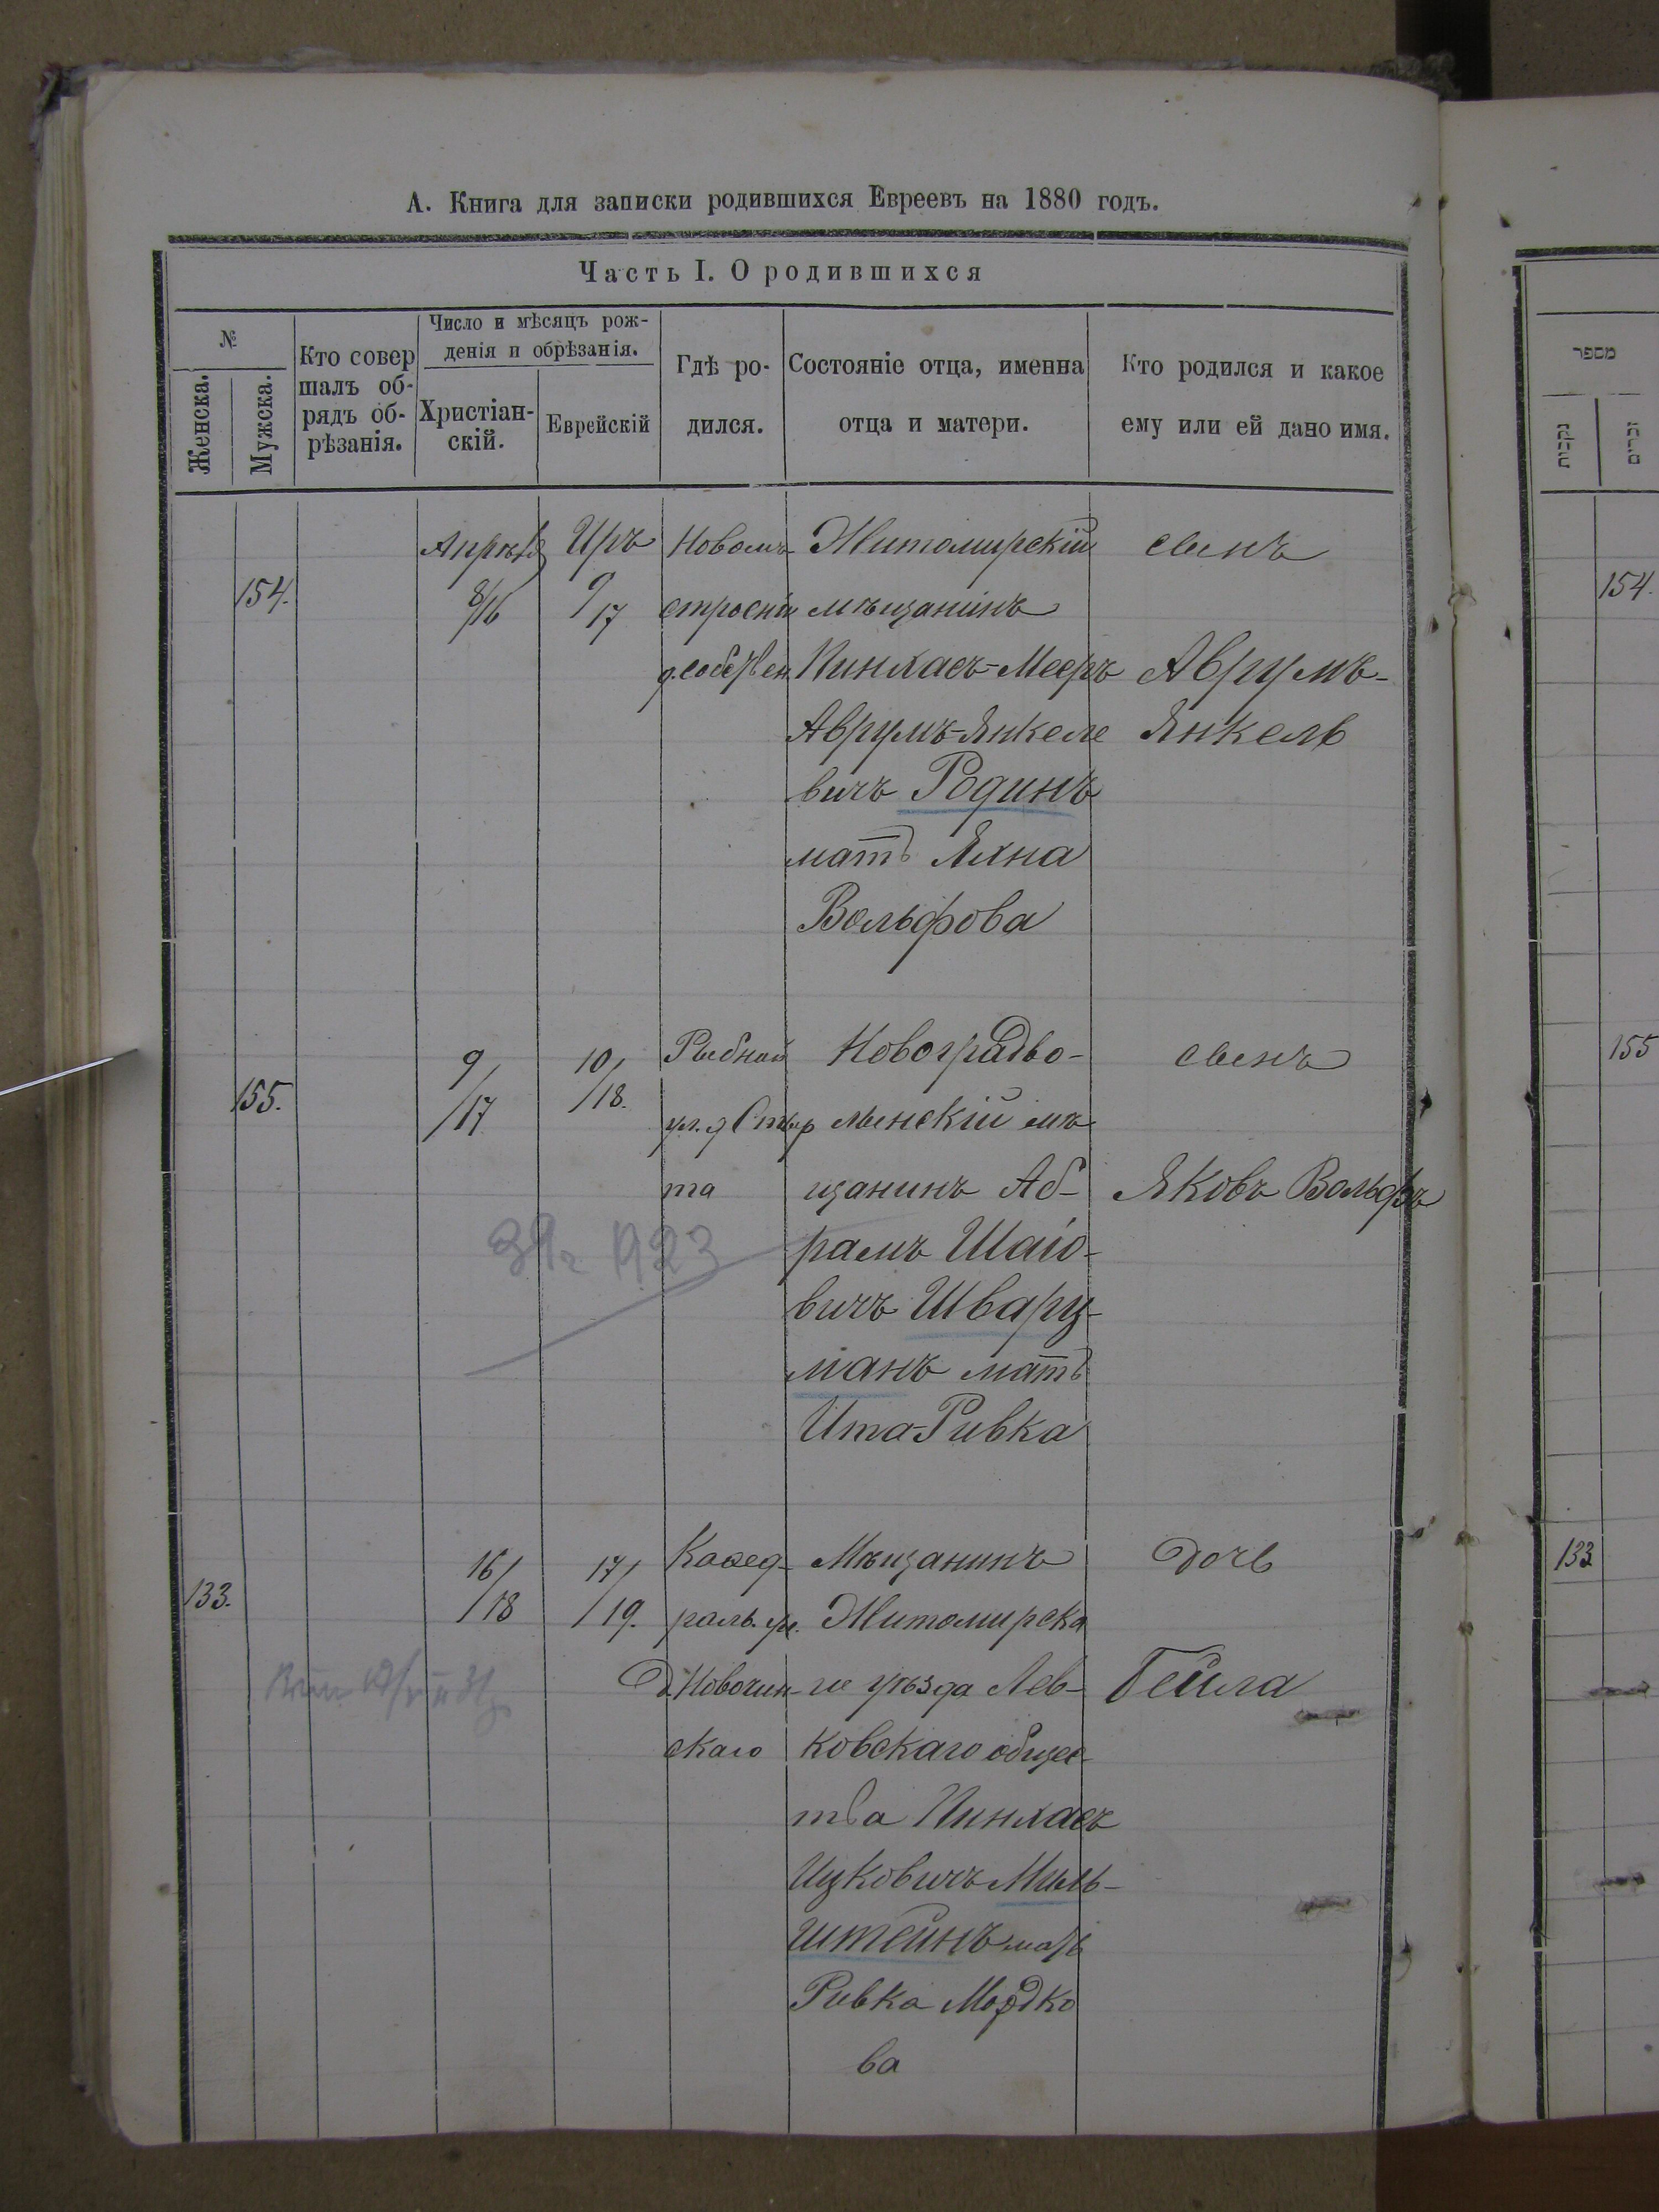 А. Книга для записки родившихся Евреевъ на 1880 годъ.
Часть I. О родившихся
№
Женска.
Мужска.
Кто совер
шалъ об-
рядъ об-
рѣзанія.
Число и мѣсяцъ рож-
денія и обрѣзанія.
Христіан-
скій.
Еврейскій
Гдѣ ро-
дился.
Состояніе отца, именна
отца и матери.
Кто родился и какое
ему или ей дано имя.
מספר
נקבות
זכרים
154.
Апрѣля
8/16
Иръ
9/17
Новомъ
строеніи
д. собствен.
Житомирскій
мѣщанинъ
Пинхасъ-Мееръ
Аврумъ-Янкеле
вичъ Родинъ
мать Яхна
Вольфова
сынъ
Аврумъ-
Янкель
154.
155.
9/17
10/18.
Рыбной
ул. д
та
Новоградво-
лынскій мѣ
щанинъ Аб-
рамъ Шаіо-
вичъ Шварц-
манъ мать
Ита-Ривка
сынъ
Яковъ Вольфъ
1923
155
133.
16/18
17/19.
Каѳед-
раль. ул.
Д. Новочин-
скаго
Мѣщанинъ
Житомирска
го уѣзда Лев-
ковскаго общес
тва Пинхасъ
Ицковичъ Миль-
штейнъ мать
Ривка Мордко
ва
дочь
Бейла
133